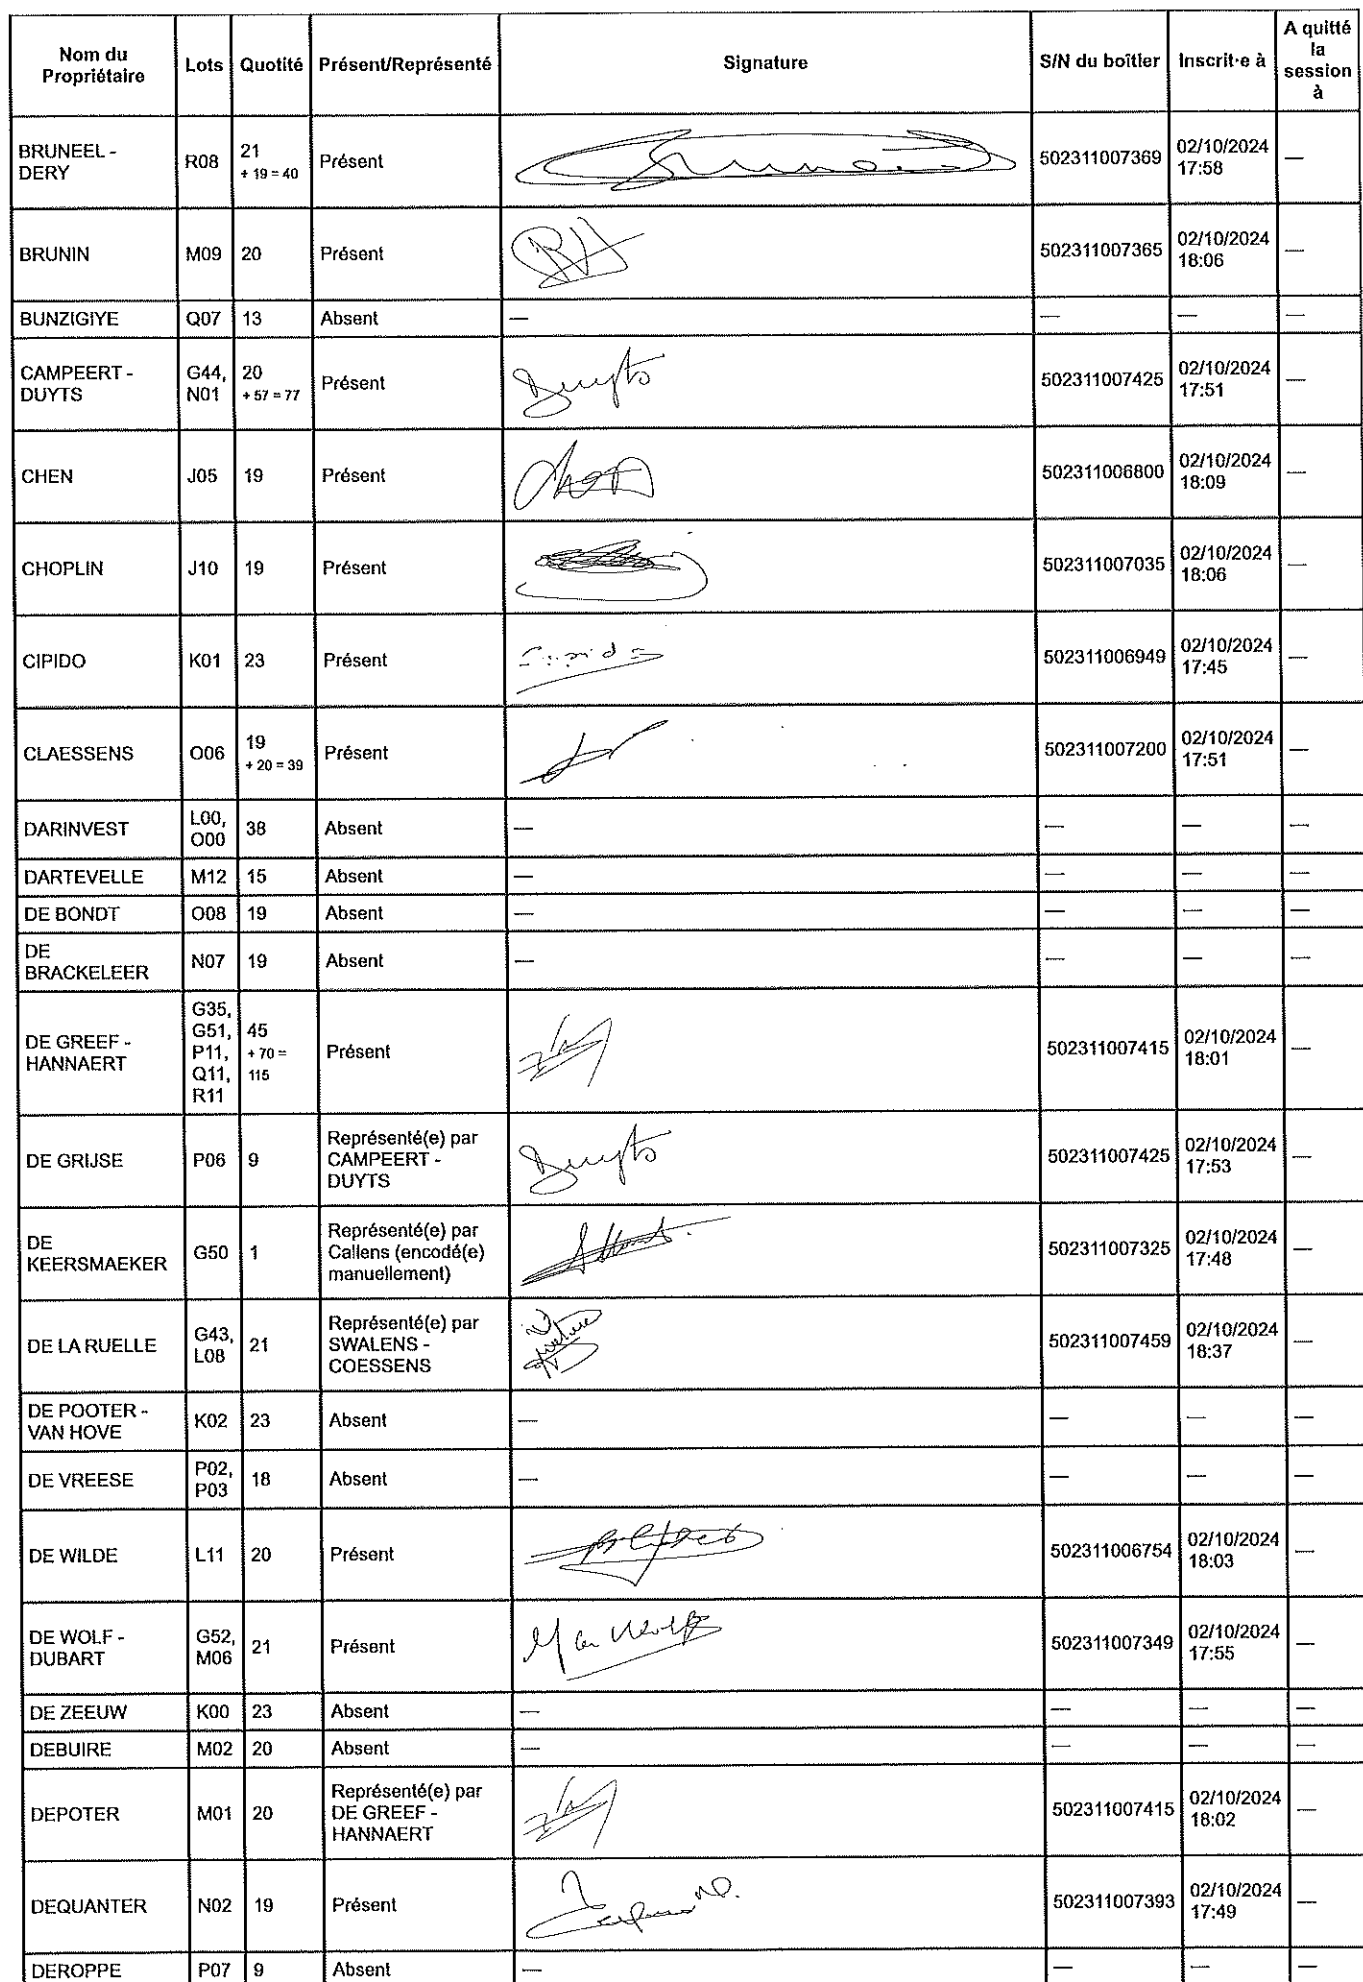 Nom du Propriétaire | Lots | Quotité | Présent/Représenté | Signature | S/N du boîtier | Inscrit·e à | A quitté la session à
BRUNEEL - DERY | R08 | 21 + 19 = 40 | Présent | | 502311007369 | 02/10/2024 17:58 | —
BRUNIN | M09 | 20 | Présent | | 502311007365 | 02/10/2024 18:06 | —
BUNZIGIYE | Q07 | 13 | Absent | — | — | — | —
CAMPEERT - DUYTS | G44, N01 | 20 + 57 = 77 | Présent | Duyts | 502311007425 | 02/10/2024 17:51 | —
CHEN | J05 | 19 | Présent | | 502311006800 | 02/10/2024 18:09 | —
CHOPLIN | J10 | 19 | Présent | | 502311007035 | 02/10/2024 18:06 | —
CIPIDO | K01 | 23 | Présent | Cipido | 502311006949 | 02/10/2024 17:45 | —
CLAESSENS | O06 | 19 + 20 = 39 | Présent | | 502311007200 | 02/10/2024 17:51 | —
DARINVEST | L00, O00 | 38 | Absent | — | — | — | —
DARTEVELLE | M12 | 15 | Absent | — | — | — | —
DE BONDT | O08 | 19 | Absent | — | — | — | —
DE BRACKELEER | N07 | 19 | Absent | — | — | — | —
DE GREEF - HANNAERT | G35, G51, P11, Q11, R11 | 45 + 70 = 115 | Présent | | 502311007415 | 02/10/2024 18:01 | —
DE GRIJSE | P06 | 9 | Représenté(e) par CAMPEERT - DUYTS | Duyts | 502311007425 | 02/10/2024 17:53 | —
DE KEERSMAEKER | G50 | 1 | Représenté(e) par Callens (encodé(e) manuellement) | | 502311007325 | 02/10/2024 17:48 | —
DE LA RUELLE | G43, L08 | 21 | Représenté(e) par SWALENS - COESSENS | | 502311007459 | 02/10/2024 18:37 | —
DE POOTER - VAN HOVE | K02 | 23 | Absent | — | — | — | —
DE VREESE | P02, P03 | 18 | Absent | — | — | — | —
DE WILDE | L11 | 20 | Présent | | 502311006754 | 02/10/2024 18:03 | —
DE WOLF - DUBART | G52, M06 | 21 | Présent | | 502311007349 | 02/10/2024 17:55 | —
DE ZEEUW | K00 | 23 | Absent | — | — | — | —
DEBUIRE | M02 | 20 | Absent | — | — | — | —
DEPOTER | M01 | 20 | Représenté(e) par DE GREEF - HANNAERT | | 502311007415 | 02/10/2024 18:02 | —
DEQUANTER | N02 | 19 | Présent | | 502311007393 | 02/10/2024 17:49 | —
DEROPPE | P07 | 9 | Absent | — | — | — | —